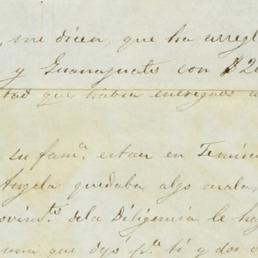 , me dicen, que ha arregl
y Guanajuato con $2
tad que habia entregado a
su fam.ª estan en
Angela quedaba algo mala,
ovim.tos dela Diligencia le ha
una que dejó p.ª tí y dos